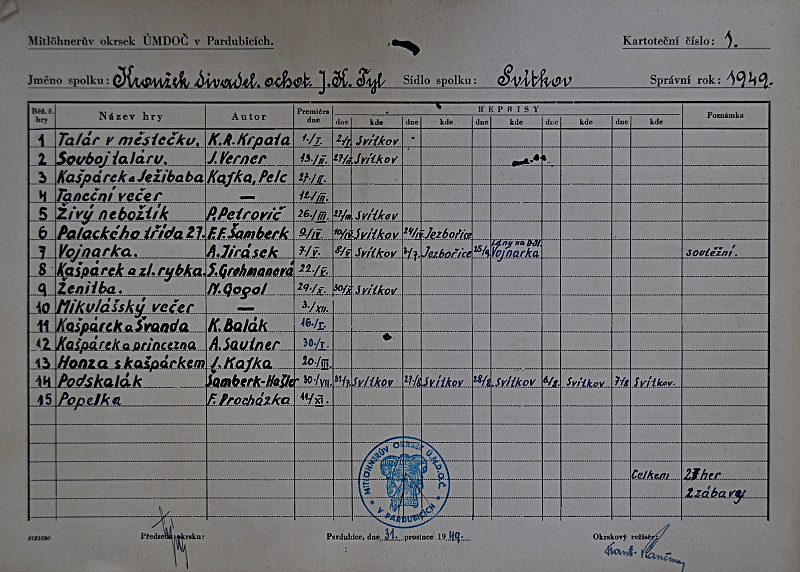 Mitlöhnerův okrsek ÚMDOČ v Pardubicích. Kartoteční číslo: 1.
Jméno spolku: Kroužek divadel. ochot. J. K. Tyl Sídlo spolku: Svítkov Správní rok: 1949.
Běž. č. hry Název hry Autor Premiéra dne REPRISY Poznámka
dne kde dne kde dne kde dne kde dne kde
1 Talár v městečku. K.R.Krpata 1./I. 2/I. Svítkov
2 Souboj talárů. J.Verner 13./II. 27/II. Svítkov
3 Kašpárek a Ježibaba Kafka, Pelc 27./II.
4 Taneční večer — 12./III.
5 Živý nebožtík P.Petrovič 26./III. 27/III. Svítkov
6 Palackého třída 27. F.F.Šamberk 9./IV. 10/IV. Svítkov 24/IV. Jezbořice
7 Vojnarka. A.Jirásek 7./V. 8/V. Svítkov 3/7. Jezbořice 25/9. Lány na Důl. Vojnarka soutěžní.
8 Kašpárek a zl. rybka. S.Grohmanová 22./V.
9 Ženitba. N.Gogol 29./X. 30/X. Svítkov
10 Mikulášský večer — 3./XII.
11 Kašpárek a Švanda K. Balák 16./I.
12 Kašpárek a princezna A. Sautner 30./I.
13 Honza s kašpárkem J. Kafka 20./III.
14 Podskalák Šamberk-Hašler 30./VII. 31/7. Svítkov 27/8. Svítkov 28/8. Svítkov 6/8. Svítkov 7/8. Svítkov.
15 Popelka F. Procházka 11/XI.
Celkem 27 her
2 zábavy
MITLÖHNERŮV OKRSEK Ú.M.D.O.Č. V PARDUBICÍCH
2721620 Předseda okrsku: Pardubice, dne 31. prosince 1949. Okrskový režisér: